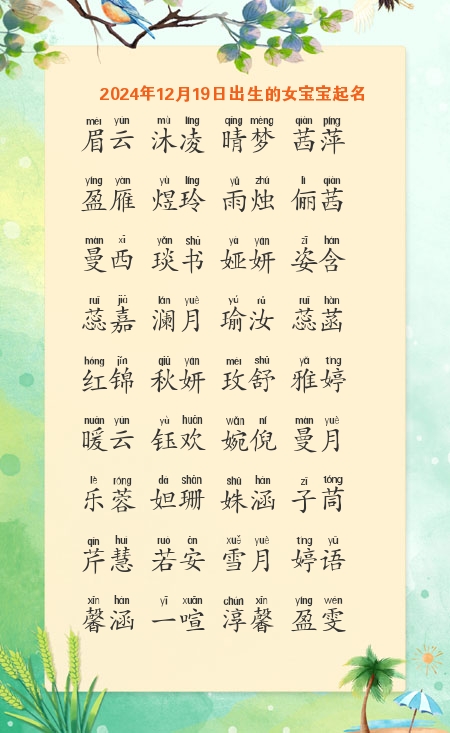 2024年12月19日出生的女宝宝起名
méi yún mù líng qíng mèng qiàn píng
眉云 沐凌 晴梦 茜萍
yíng yàn yù líng yǔ zhú lì qiàn
盈雁 煜玲 雨烛 俪茜
màn xī yǎn shū yà yán zī hán
曼西 琰书 娅妍 姿含
ruǐ jiā lán yuè yú rǔ ruǐ hàn
蕊嘉 澜月 瑜汝 蕊菡
hóng jǐn qiū yán méi shū yǎ tíng
红锦 秋妍 玫舒 雅婷
nuǎn yún yù huān wǎn ní màn yuè
暖云 钰欢 婉倪 曼月
lè róng dá shān shū hán zǐ tóng
乐蓉 妲珊 姝涵 子茼
qín huì ruò ān xuě yuè tíng yǔ
芹慧 若安 雪月 婷语
xīn hán yī xuān chún xīn yíng wén
馨涵 一喧 淳馨 盈雯